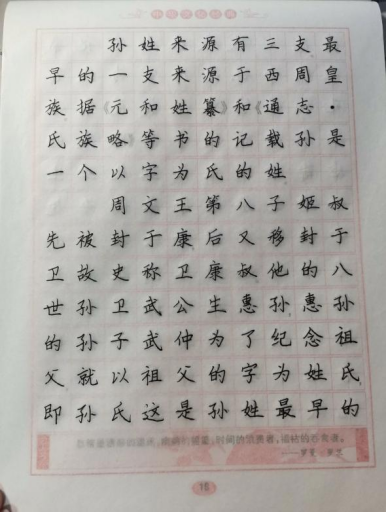 孙姓来源有三支最
早的一支来源于西周皇
族据《元和姓纂》和《通志·
氏族略》等书的记载孙是
一个以字为氏的姓
周文王第八子姬叔
先被封于康后又移封于
卫故史称卫康叔他的八
世孙卫武公生惠孙惠孙
的孙子武仲为了纪念祖
父就以祖父的字为姓氏
即孙氏这是孙姓最早的
18